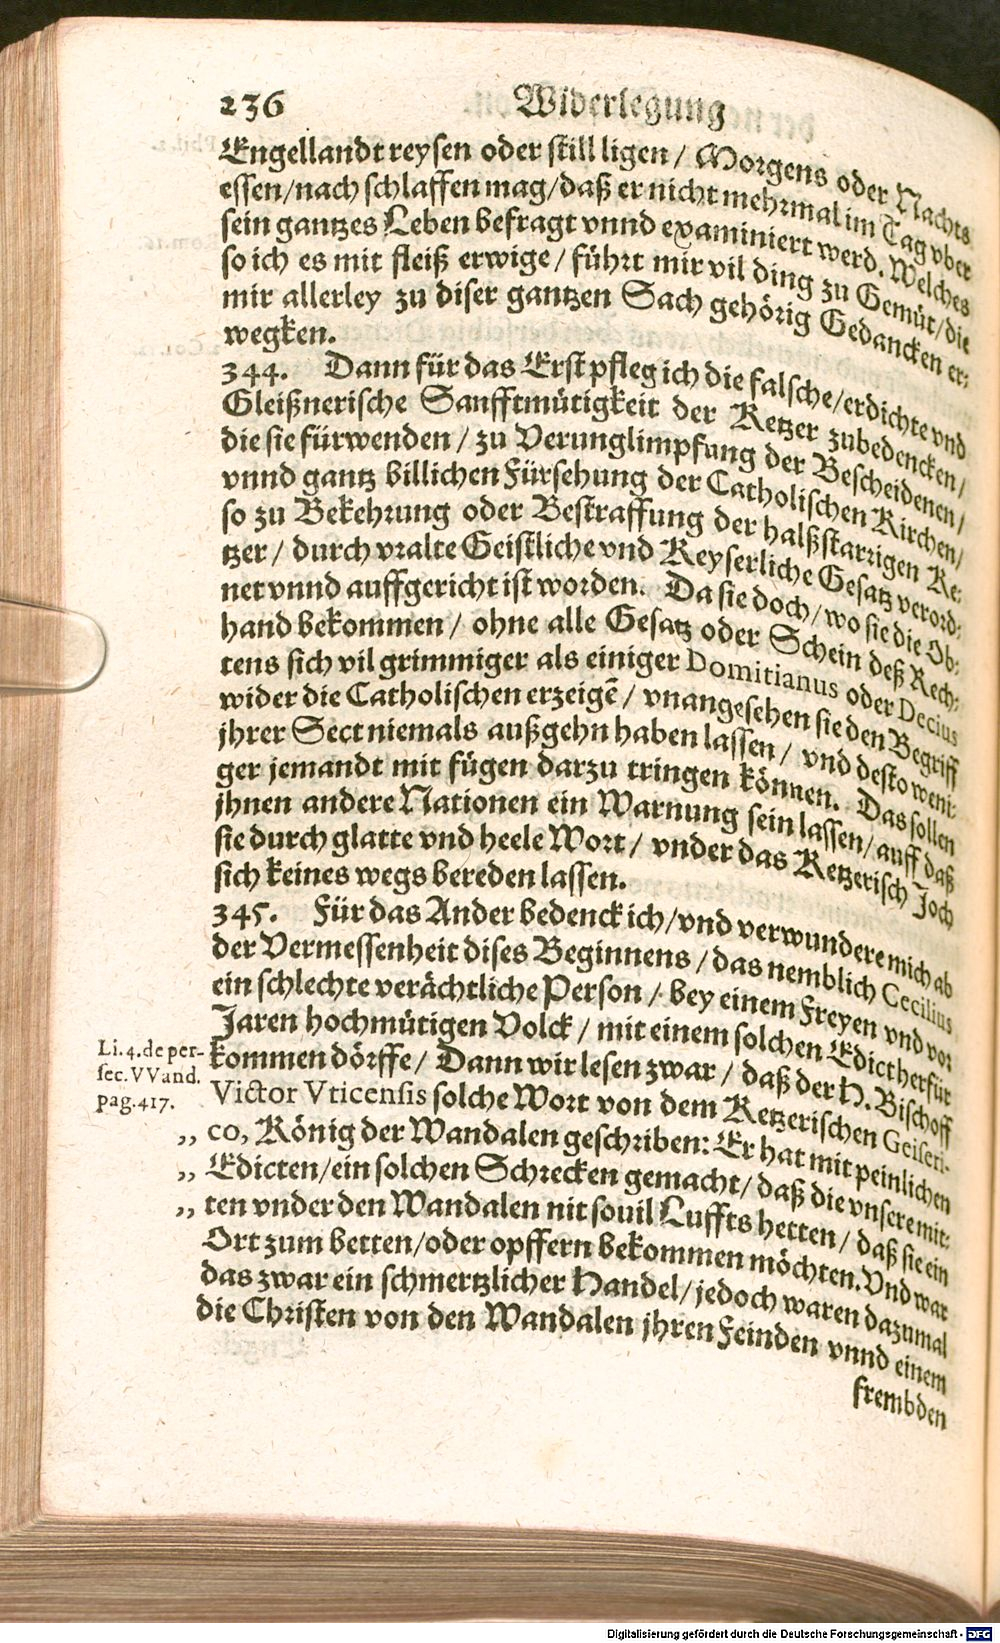 236 Widerlegung
Engellandt reysen oder still ligen / Morgens oder Nachts
essen/nach schlaffen mag/daß er nicht mehrmal im Tag vber
sein gantzes Leben befragt vnnd examiniert werd. Welches
so ich es mit fleiß erwige / führt mir vil ding zu Gemüt/die
mir allerley zu diser gantzen Sach gehörig Gedancken er-
wegken.
344. Dann für das Erst pfleg ich die falsche/erdichte vnd
Gleißnerische Sanfftmütigkeit der Ketzer zubedencken /
die sie fürwenden / zu Verunglimpfung der Bescheidenen /
vnnd gantz billichen Fürsehung der Catholischen Kirchen/
so zu Bekehrung oder Bestraffung der halßstarrigen Ke-
tzer / durch vralte Geistliche vnd Keyserliche Gesatz verord-
net vnnd auffgericht ist worden. Da sie doch / wo sie die Ob-
hand bekommen / ohne alle Gesatz oder Schein deß Rech-
tens sich vil grimmiger als einiger Domitianus oder Decius
wider die Catholischen erzeigẽ / vnangesehen sie den Begriff
jhrer Sect niemals außgehn haben lassen / vnd desto weni-
ger jemandt mit fügen darzu tringen können. Das sollen
jhnen andere Nationen ein Warnung sein lassen/ auff daß
sie durch glatte vnd heele Wort / vnder das Ketzerisch Joch
sich keines wegs bereden lassen.
345. Für das Ander bedenck ich/vnd verwundere mich ab
der Vermessenheit dises Beginnens / das nemblich Cecilius
ein schlechte verächtliche Person / bey einem Freyen vnd vor
Jaren hochmütigen Volck / mit einem solchen Edict herfür
Li. 4. de per-
sec. VVand.
pag. 417.
kommen dörffe / Dann wir lesen zwar / daß der H. Bischoff
Victor Vticensis solche Wort von dem Ketzerischen Geiseri-
„ co, König der Wandalen geschriben: Er hat mit peinlichen
„ Edicten/ein solchen Schrecken gemacht/ daß die vnsere mit-
„ ten vnder den Wandalen nit souil Luffts hetten / daß sie ein
Ort zum betten/oder opffern bekommen möchten. Vnd war
das zwar ein schmertzlicher Handel/ jedoch waren dazumal
die Christen von den Wandalen jhren Feinden vnnd einem
frembden
Digitalisierung gefördert durch die Deutsche Forschungsgemeinschaft - DFG